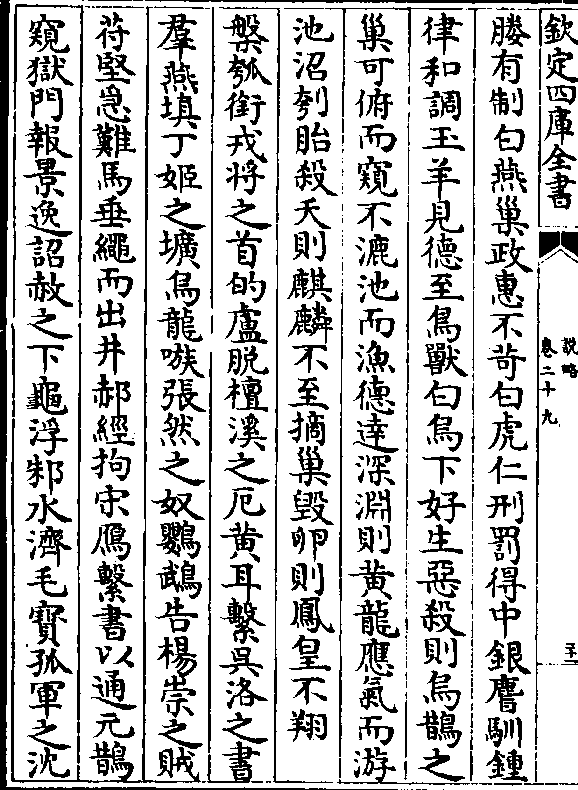 欽定四庫全書
説略
卷二十九
媵有制白燕巢政惠不苛白虎仁刑罰得中銀麕馴鍾
律和調玉羊見德至鳥獸白烏下好生惡殺則烏鵲之
巢可俯而窺不漉池而漁德達深淵則黄龍應氣而游
池沼刳胎殺夭則麒麟不至摘巢毁卵則鳳皇不翔
槃瓠銜戎將之首的盧脱檀溪之厄黄耳繫吳洛之書
羣燕填丁姬之壙烏龍嗾張然之奴鸚鵡告楊崇之賊
苻堅急難馬垂繩而出井郝經拘宋鴈繫書以通元鵲
窺獄門報景逸詔赦之下龜浮邾水濟毛寶孤軍之沈